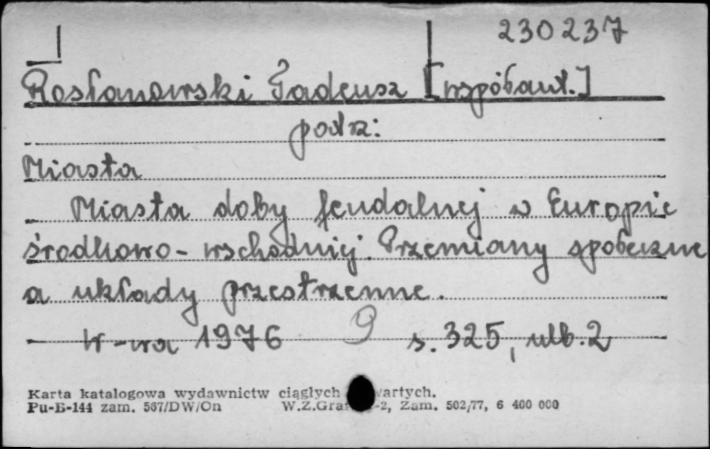 230237
Rosłanowski Tadeusz [współaut.]
podz:
Miasta
Miasta doby feudalnej w Europie
środkowo-wschodniej. Przemiany społeczne
a układy przestrzenne.
W-wa 1976 9 s. 325, nlb. 2
Karta katalogowa wydawnictw ciągłych wartych.
Pu-B-144 zam. 567/DW/On W.Z.Graf. -2, Zam. 502/77, 6 400 000